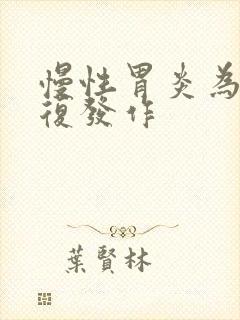 慢性胃炎為
復發作
葉賢林